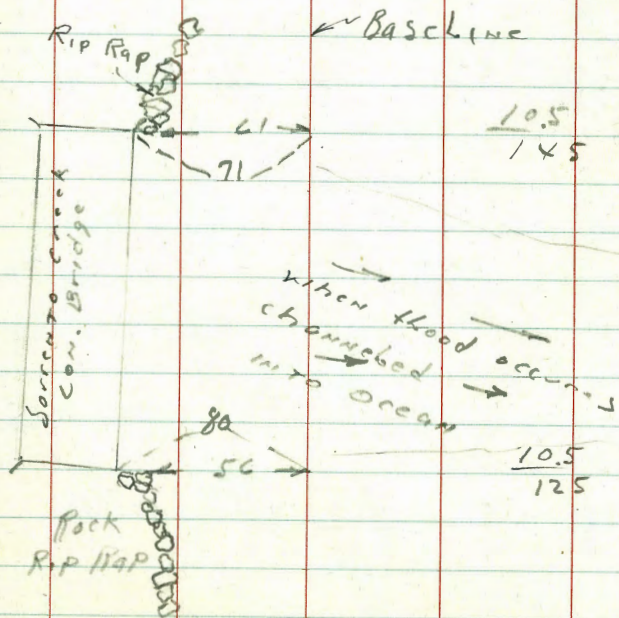 BaseLine
Rip Rap
61
10.5
145
71
Sorrento Creek
Con. Bridge
when flood occurrs
channeled
into Ocean
80
56
10.5
125
Rock
Rip Rap